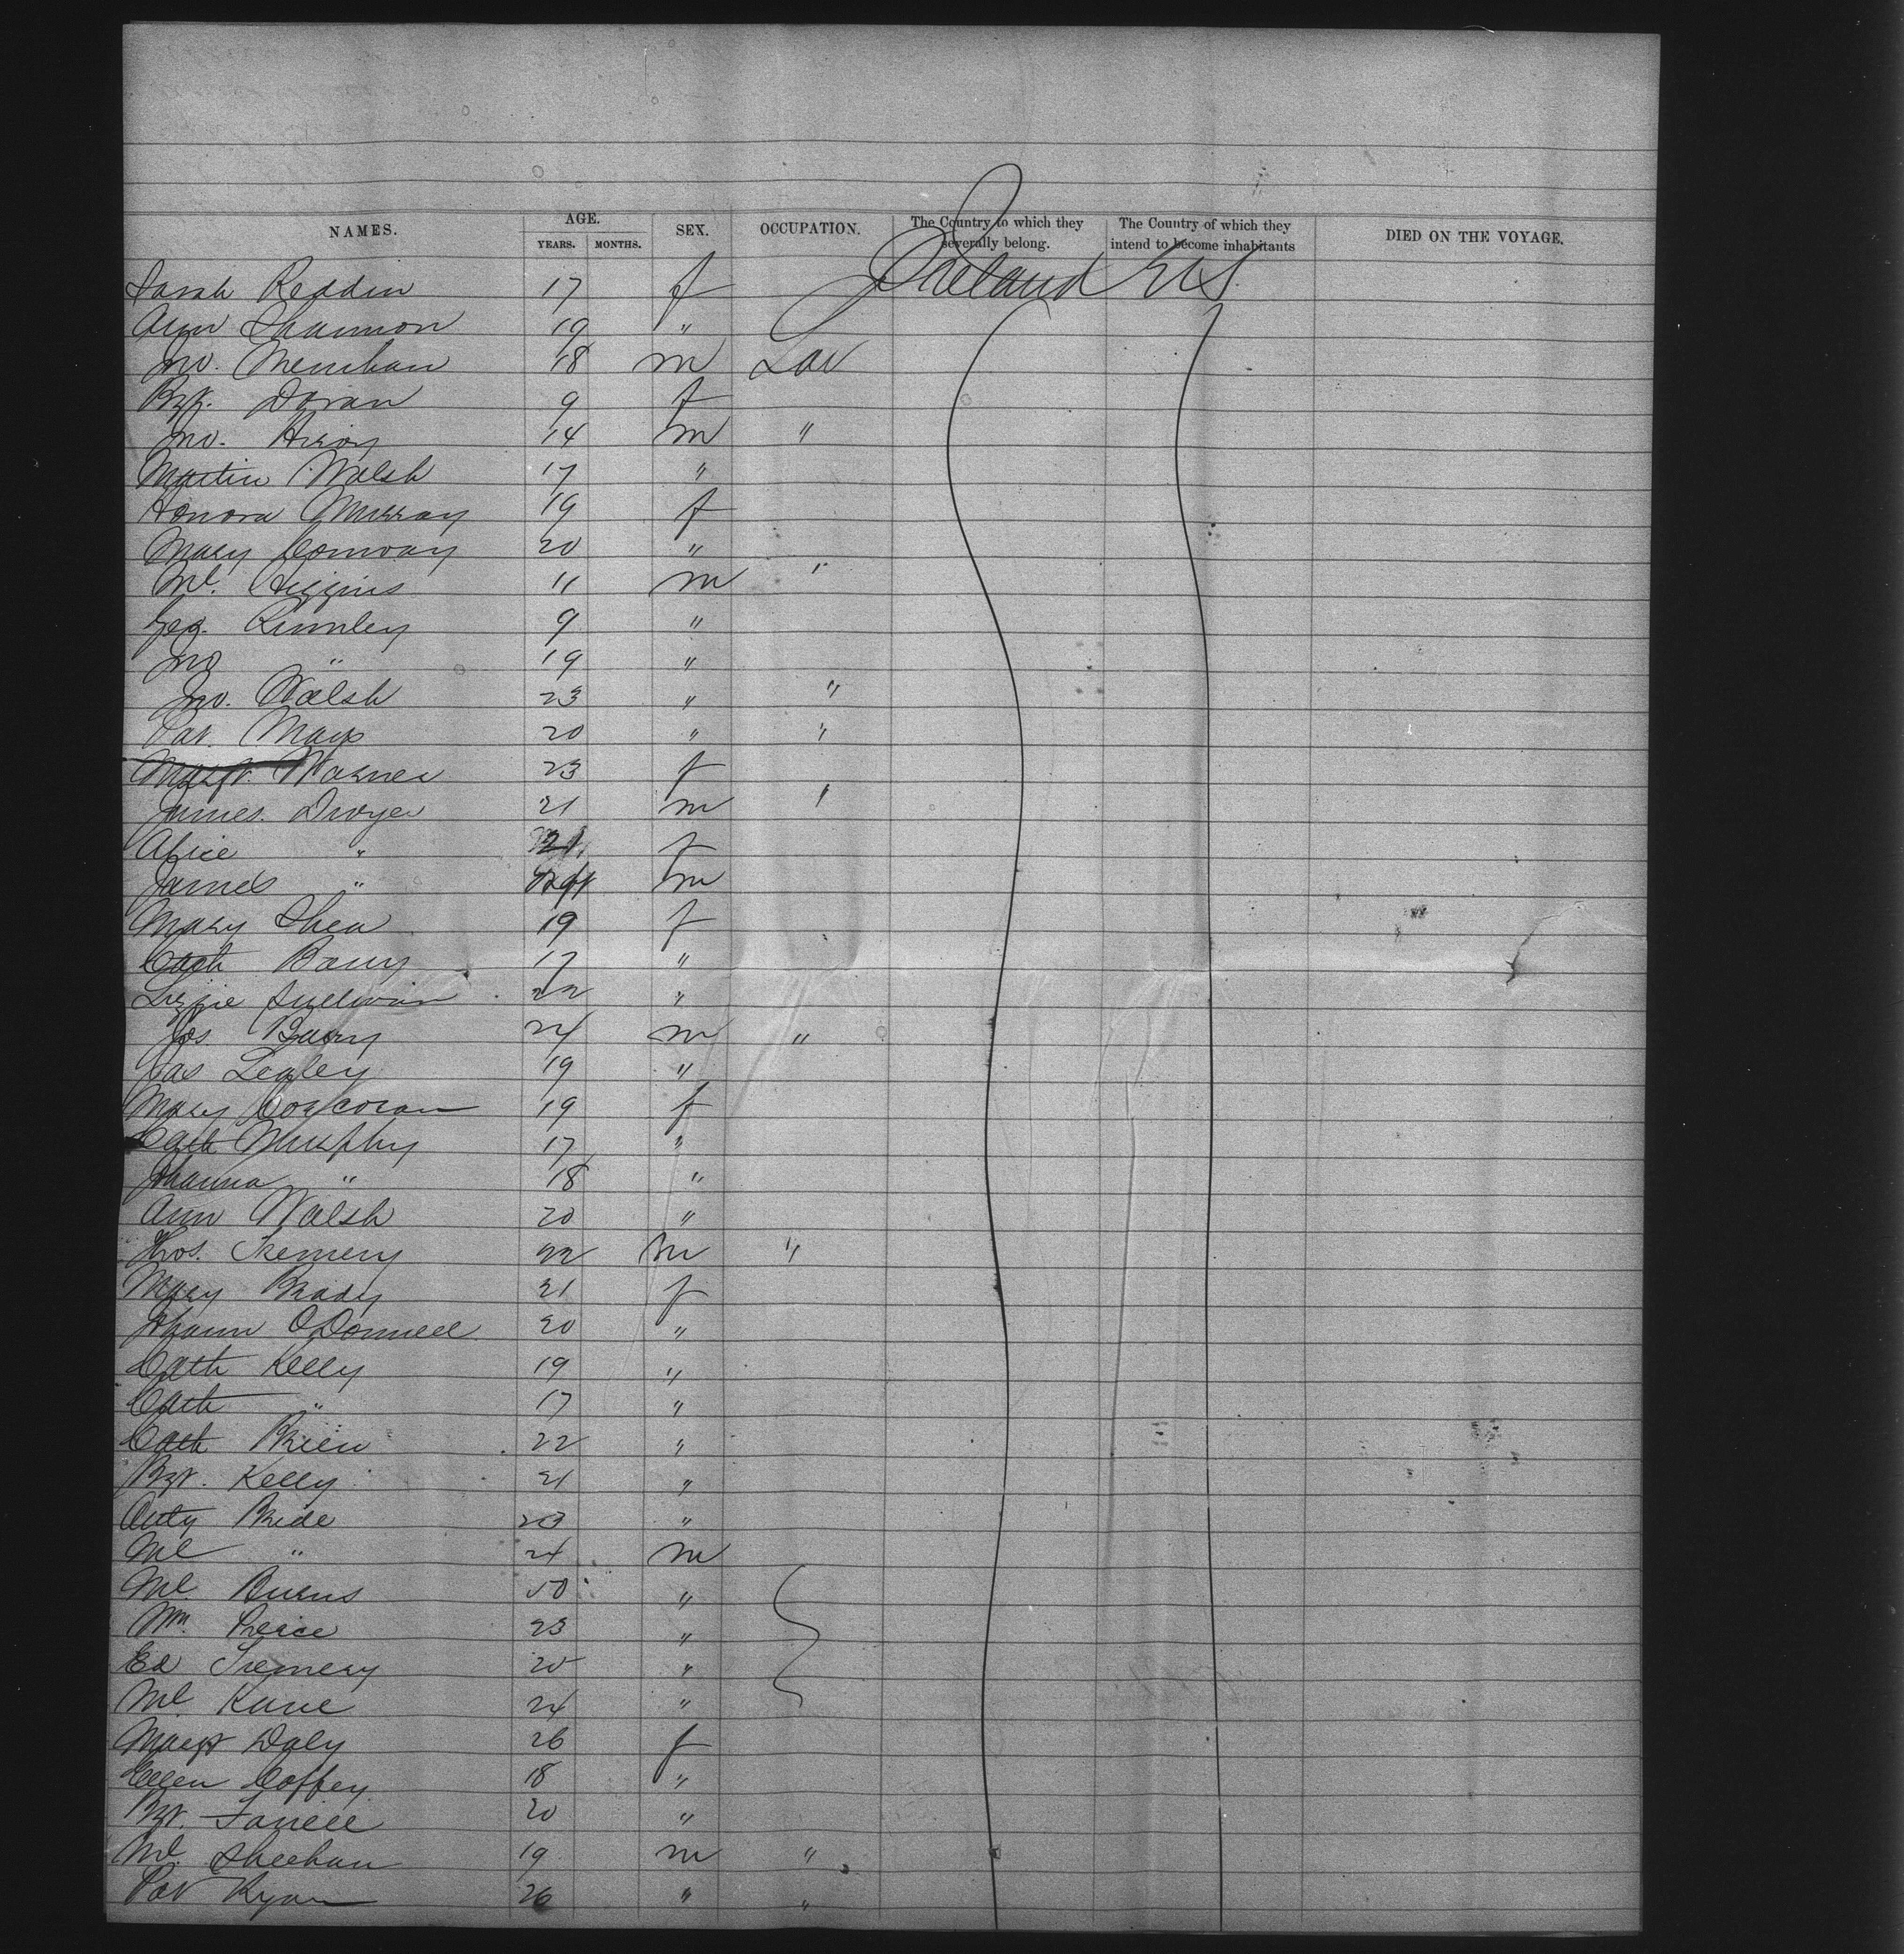 NAMES. AGE. YEARS. MONTHS. SEX. OCCUPATION. The Country to which they severally belong. The Country of which they intend to become inhabitants DIED ON THE VOYAGE.
Sarah Reddin 17 f Ireland US
Ann Shannon 19 "
Jno. Menihan 18 m Lab
Bgt. Doran 9 f
Jno. 14 m "
Martin Walsh 17 "
Honora Murray 19 f
Mary Conway 20 "
Ml. Higgins 11 m "
Geo. Rumley 9 "
Jno " 19 "
Jno. Walsh 23 " "
Pat. Mays 20 " "
Margt. Warner 23 f
James Dwyer 21 m "
Alice " 21 f
James " m
Mary Shea 19 f
Cath Barry 17 "
Lizzie Sullivan 22 "
Jos. Barry 24 m "
Jas Legley 19 "
Mary Corcoran 19 f
Cath Murphy 17 "
Johanna " 18 "
Ann Walsh 20 "
Thos. Tremery 22 m "
Mary Brady 21 f
Johann O'Donnell 20 "
Cath Kelly 19 "
Cath " 17 "
Cath Brien 22 "
Bgt. Kelly 21 "
Bride 23 "
Ml " 24 m
Ml. Burns 50 "
Wm. Preice 23 "
Ed Tremery 20 "
Ml. Kane 24 "
Margt Daly 26 f
Ellen Coffey 18 "
Bgt. Farrell 20 "
Ml. Sheehan 19 m "
Pat Ryan 26 " "